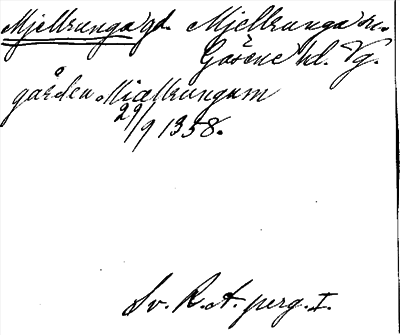 Mjellrunga gd. Mjellrunga sn.
Gäsene hd. Vg.
gården Miællrungum
29/9 1358.
Sv. R. A. perg. I.